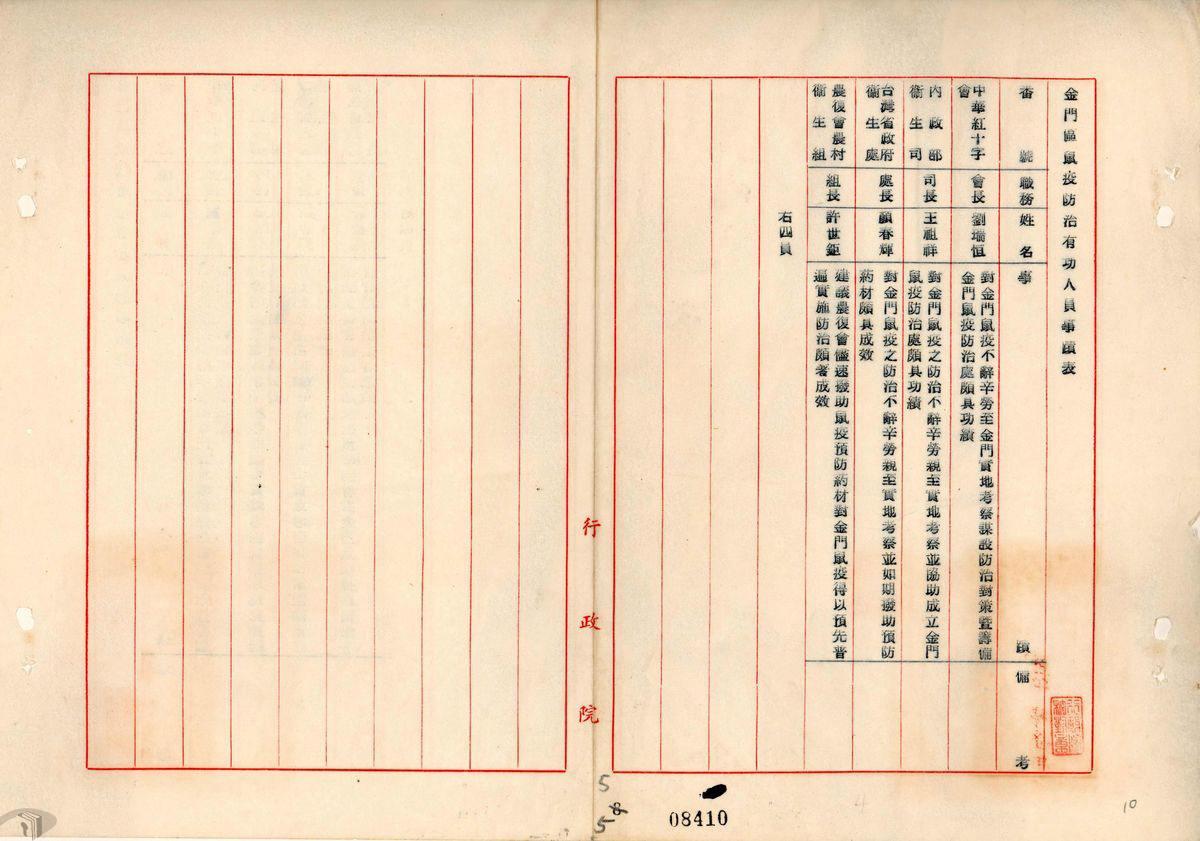 金門區鼠疫防治有功人員事蹟表
番號 職務 姓名 事蹟 備考
中華紅十字會 會長 劉瑞恒
對金門鼠疫不辭辛勞至金門實地考察謀設防治對策暨籌備
金門鼠疫防治處頗具功績
內政部衞生司 司長 王祖祥
對金門鼠疫之防治不辭辛勞親至實地考察並協助成立金門
鼠疫防治處頗具功績
台灣省政府衞生處 處長 顏春輝
對金門鼠疫之防治不辭辛勞親至實地考察並如期撥助預防
葯材頗具成效
農復會農村衞生組 組長 許世鉅
建議農復會儘速撥助鼠疫預防葯材對金門鼠疫得以預先普
遍實施防治頗著成效
右四員
行政院
08410
5
8
5
10